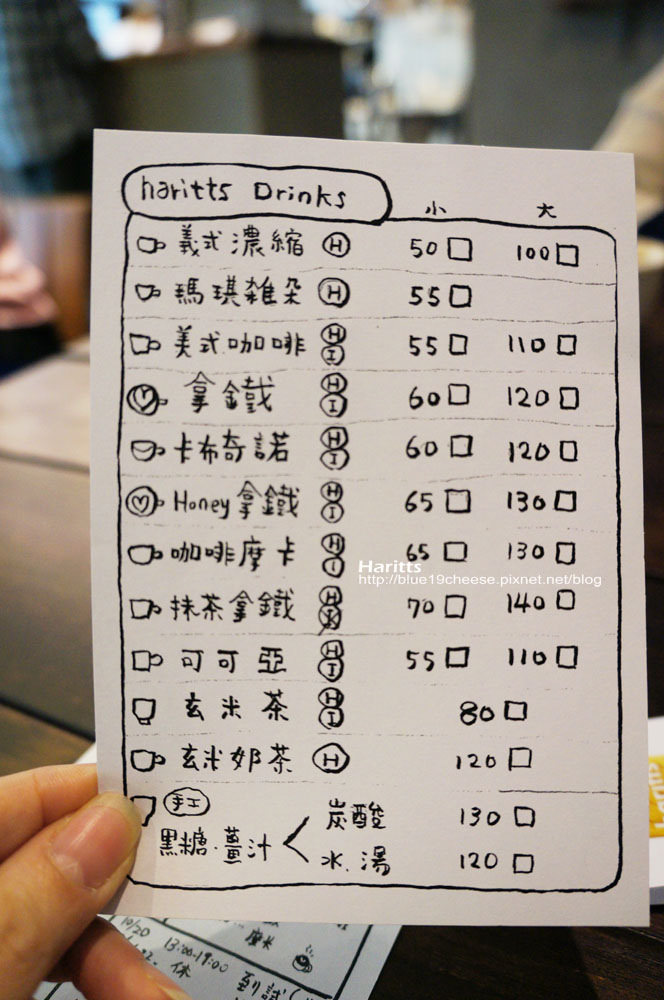 haritts Drinks 小 大
義式濃縮 H 50 □ 100 □
瑪琪雑朵 H 55 □
美式咖啡 H I 55 □ 110 □
拿鐵 H I 60 □ 120 □
卡布奇諾 H I 60 □ 120 □
Honey拿鐵 H I 65 □ 130 □
咖啡摩卡 H I 65 □ 130 □
Haritts
http://blue19cheese.pixnet.net/blog
抹茶拿鐵 H 70 □ 140 □
可可亞 H I 55 □ 110 □
玄米茶 H I 80 □
玄米奶茶 H 120 □
手工
黑糖.薑汁 炭酸 130 □
水.湯 120 □
10/20 13:00-19:00
休